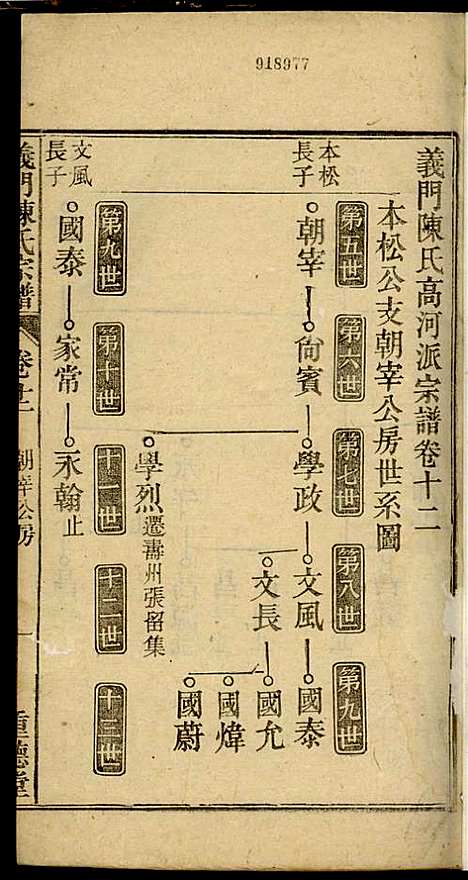 918977
義門陳氏高河派宗譜卷十二
本松公支朝宰公房世系圖
第五世 第六世 第七世 第八世 第九世
本松長子
朝宰 尙賓 學政 文風 國泰
文長 國允
國煒
國蔚
學烈 遷壽州張留集
第九世 第十世 十一世 十二世 十三世
文風長子
國泰 家常 永翰 止
義門陳氏宗譜 卷十二 朝宰公房 一 重德堂